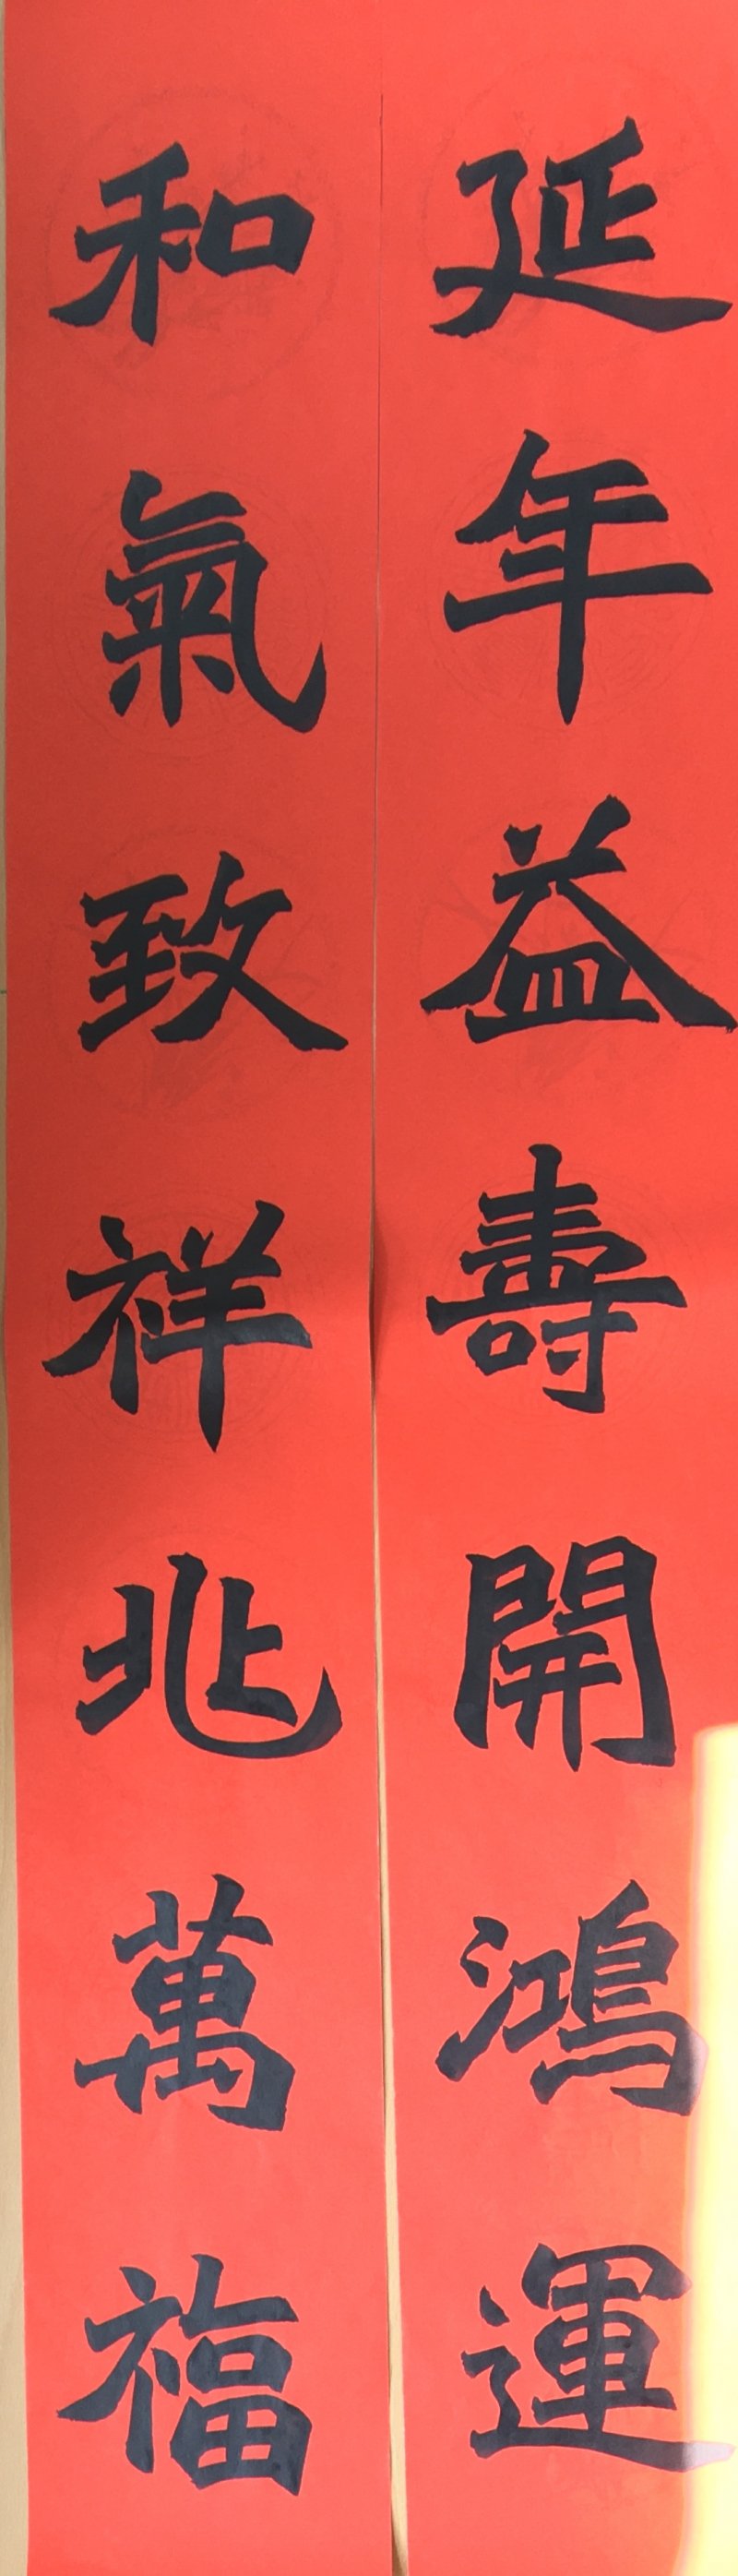 延年益壽開鴻運
和氣致祥兆萬福